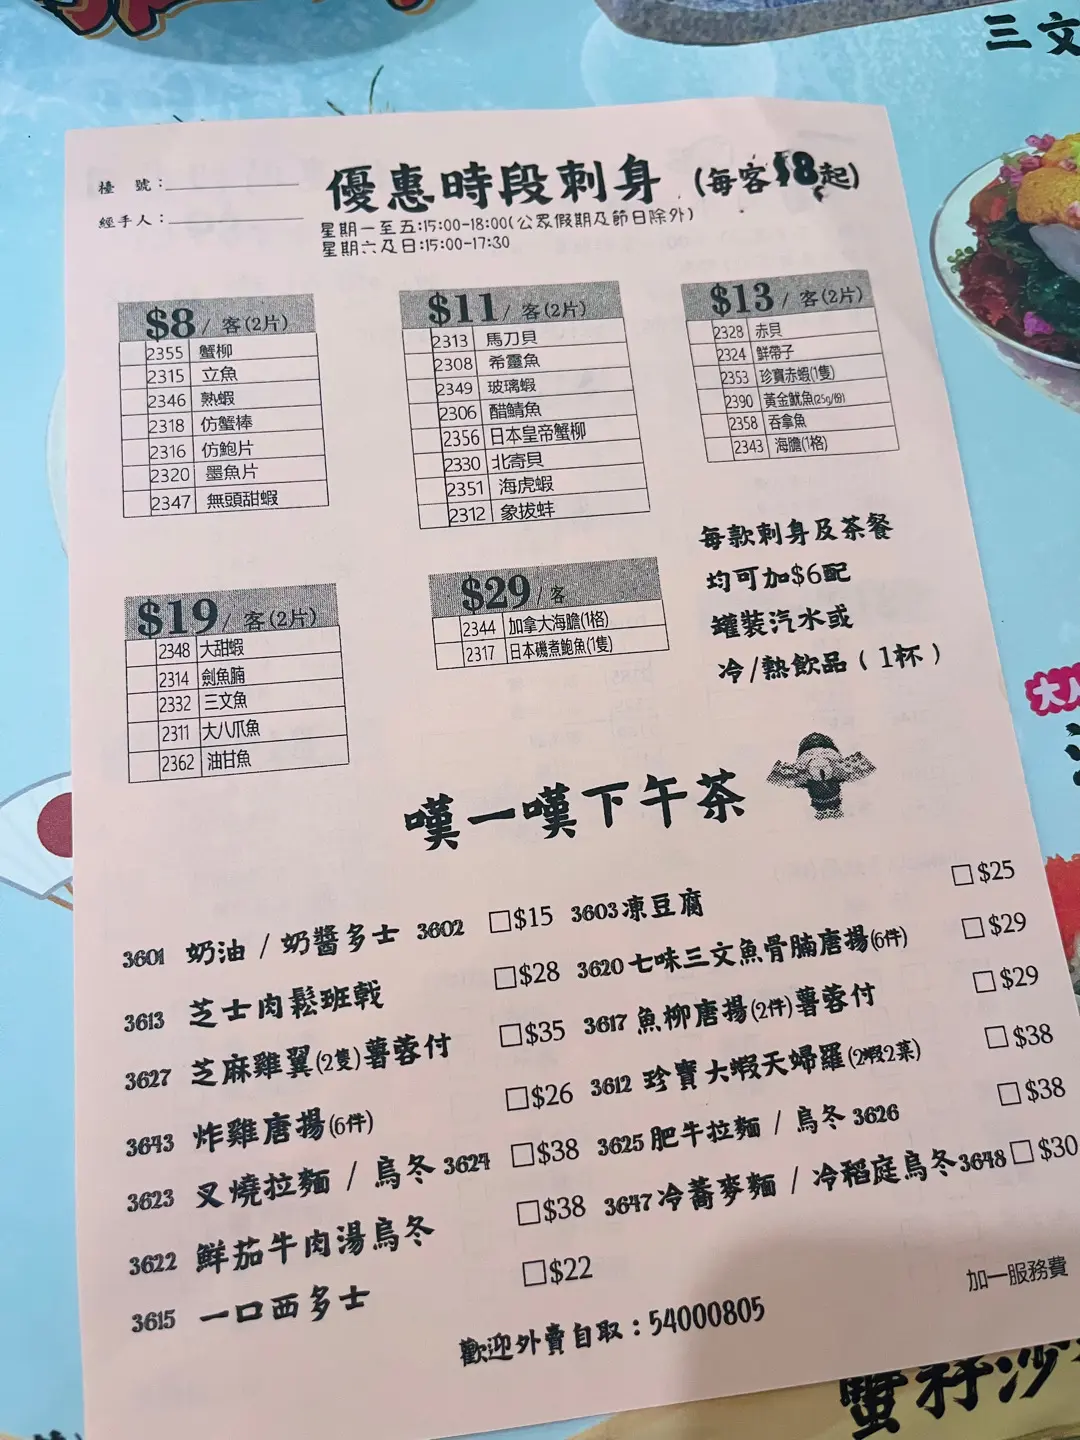 三文
檯 號：
經手人：
優惠時段刺身 (每客$8起)
星期一至五:15:00-18:00(公眾假期及節日除外)
星期六及日:15:00-17:30
$8/ 客(2片)
2355 蟹柳
2315 立魚
2346 熟蝦
2318 仿蟹棒
2316 仿鮑片
2320 墨魚片
2347 無頭甜蝦
$11/ 客(2片)
2313 馬刀貝
2308 希靈魚
2349 玻璃蝦
2306 醋鯖魚
2356 日本皇帝蟹柳
2330 北寄貝
2351 海虎蝦
2312 象拔蚌
$13/ 客(2片)
2328 赤貝
2324 鮮帶子
2353 珍寶赤蝦(1隻)
2390 黃金魷魚(25g/份)
2358 吞拿魚
2343 海膽(1格)
$19/ 客(2片)
2348 大甜蝦
2314 劍魚腩
2332 三文魚
2311 大八爪魚
2362 油甘魚
$29/客
2344 加拿大海膽(1格)
2317 日本磯煮鮑魚(1隻)
每款刺身及茶餐
均可加$6配
罐裝汽水或
冷/熱飲品（1杯）
嘆一嘆下午茶
3601 奶油 / 奶醬多士 3602 □$15
3613 芝士肉鬆班戟 □$28
3627 芝麻雞翼(2隻)薯蓉付 □$35
3643 炸雞唐揚(6件) □$26
3623 叉燒拉麵 / 烏冬 3624 □$38
3622 鮮茄牛肉湯烏冬 □$38
3615 一口西多士 □$22
3603 凍豆腐 □$25
3620 七味三文魚骨腩唐揚(6件) □$29
3617 魚柳唐揚(2件)薯蓉付 □$29
3612 珍寶大蝦天婦羅(2蝦2菜) □$38
3625 肥牛拉麵 / 烏冬 3626 □$38
3647 冷蕎麥麵 / 冷稻庭烏冬 3648 □$30
加一服務費
歡迎外賣自取：54000805
大八
蟹籽沙